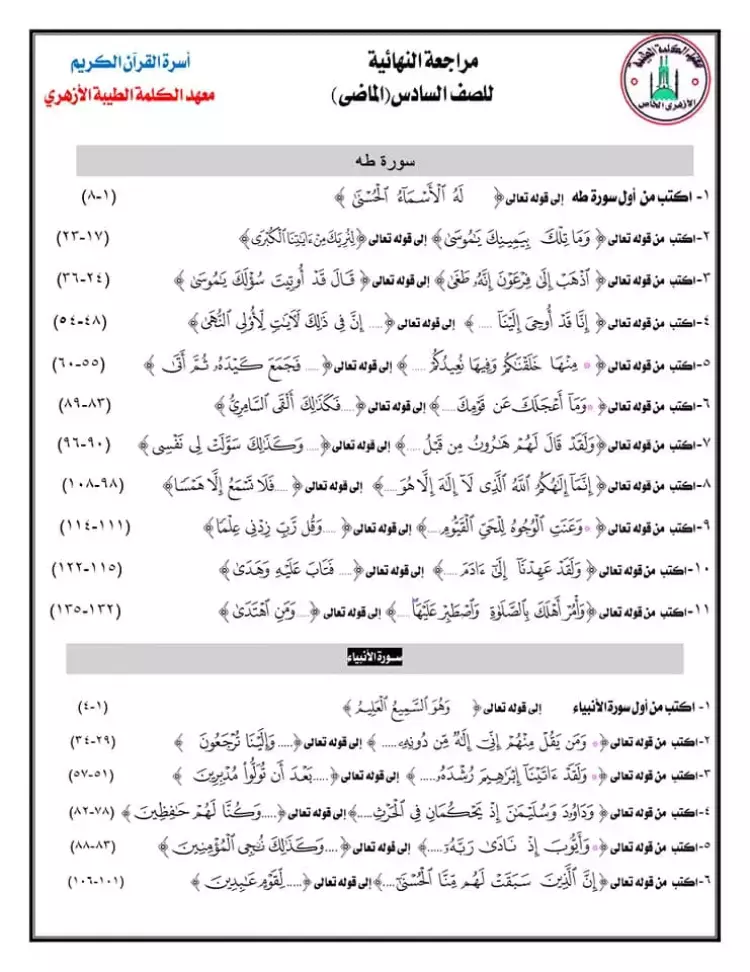 مراجعة النهائية
أسرة القرآن الكريم
للصف السادس(الماضى)
معهد الكلمة الطيبة الأزهري
معهد الكلمة الطيبة
الأزهرى الخاص
سورة طه
١- اكتب من أول سورة طه إلى قوله تعالى﴿ لَهُ ٱلْأَسْمَآءُ ٱلْحُسْنَىٰ ﴾ (١-٨)
٢-اكتب من قوله تعالى﴿ وَمَا تِلْكَ بِيَمِينِكَ يَٰمُوسَىٰ﴾ إلى قوله تعالى﴿لِنُرِيَكَ مِنْ ءَايَٰتِنَا ٱلْكُبْرَى﴾ (١٧-٢٣)
٣-اكتب من قوله تعالى﴿ ٱذْهَبْ إِلَىٰ فِرْعَوْنَ إِنَّهُۥ طَغَىٰ﴾ إلى قوله تعالى﴿ قَالَ قَدْ أُوتِيتَ سُؤْلَكَ يَٰمُوسَىٰ ﴾ (٢٤-٣٦)
٤-اكتب من قوله تعالى﴿ إِنَّا قَدْ أُوحِىَ إِلَيْنَآ ..... ﴾ إلى قوله تعالى﴿..... إِنَّ فِى ذَٰلِكَ لَءَايَٰتٍ لِّأُو۟لِى ٱلنُّهَىٰ﴾ (٤٨-٥٤)
٥-اكتب من قوله تعالى﴿ * مِنْهَا خَلَقْنَٰكُمْ وَفِيهَا نُعِيدُكُمْ ..... ﴾ إلى قوله تعالى﴿ .... فَجَمَعَ كَيْدَهُۥ ثُمَّ أَتَىٰ ﴾ (٥٥-٦٠)
٦-اكتب من قوله تعالى﴿ *وَمَآ أَعْجَلَكَ عَن قَوْمِكَ.....﴾ إلى قوله تعالى﴿....فَكَذَٰلِكَ أَلْقَى ٱلسَّامِرِىُّ﴾ (٨٣-٨٩)
٧-اكتب من قوله تعالى﴿وَلَقَدْ قَالَ لَهُمْ هَٰرُونُ مِن قَبْلُ .....﴾ إلى قوله تعالى﴿.... وَكَذَٰلِكَ سَوَّلَتْ لِى نَفْسِى ﴾ (٩٠-٩٦)
٨-اكتب من قوله تعالى﴿ إِنَّمَآ إِلَٰهُكُمُ ٱللَّهُ ٱلَّذِى لَآ إِلَٰهَ إِلَّا هُوَ.....﴾ إلى قوله تعالى﴿ .....فَلَا تَسْمَعُ إِلَّا هَمْسًا﴾ (٩٨-١٠٨)
٩-اكتب من قوله تعالى﴿ * وَعَنَتِ ٱلْوُجُوهُ لِلْحَىِّ ٱلْقَيُّومِ.....﴾ إلى قوله تعالى﴿ ....وَقُل رَّبِّ زِدْنِى عِلْمًا﴾ (١١١-١١٤)
١٠-اكتب من قوله تعالى﴿ وَلَقَدْ عَهِدْنَآ إِلَىٰٓ ءَادَمَ .....﴾ إلى قوله تعالى﴿.... فَتَابَ عَلَيْهِ وَهَدَىٰ ﴾ (١١٥-١٢٢)
١١-اكتب من قوله تعالى﴿وَأْمُرْ أَهْلَكَ بِٱلصَّلَوٰةِ وَٱصْطَبِرْ عَلَيْهَا ....﴾ إلى قوله تعالى﴿....وَمَنِ ٱهْتَدَىٰ ﴾ (١٣٢-١٣٥)
سورة الأنبياء
١- اكتب من أول سورة الأنبياء إلى قوله تعالى﴿ وَهُوَ ٱلسَّمِيعُ ٱلْعَلِيمُ ﴾ (١-٤)
٢-اكتب من قوله تعالى﴿* وَمَن يَقُلْ مِنْهُمْ إِنِّىٓ إِلَٰهٌ مِّن دُونِهِۦ ..... ﴾ إلى قوله تعالى﴿..... وَإِلَيْنَا تُرْجَعُونَ ﴾ (٢٩-٣٤)
٣-اكتب من قوله تعالى﴿* وَلَقَدْ ءَاتَيْنَآ إِبْرَٰهِيمَ رُشْدَهُۥ..... ﴾ إلى قوله تعالى﴿.....بَعْدَ أَن تُوَلُّوا۟ مُدْبِرِينَ ﴾ (٥١-٥٧)
٤-اكتب من قوله تعالى﴿ وَدَاوُۥدَ وَسُلَيْمَٰنَ إِذْ يَحْكُمَانِ فِى ٱلْحَرْثِ.....﴾إلى قوله تعالى﴿.....وَكُنَّا لَهُمْ حَٰفِظِينَ ﴾ (٧٨-٨٢)
٥-اكتب من قوله تعالى﴿*وَأَيُّوبَ إِذْ نَادَىٰ رَبَّهُۥٓ.....﴾ إلى قوله تعالى﴿ ....وَكَذَٰلِكَ نُۨجِى ٱلْمُؤْمِنِينَ ﴾ (٨٣-٨٨)
٦-اكتب من قوله تعالى﴿إِنَّ ٱلَّذِينَ سَبَقَتْ لَهُم مِّنَّا ٱلْحُسْنَىٰٓ....﴾إلى قوله تعالى﴿..... لِّقَوْمٍ عَٰبِدِينَ ﴾ (١٠١-١٠٦)